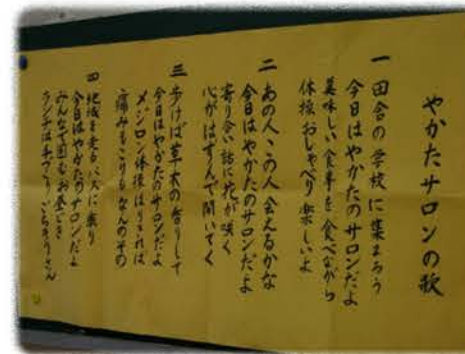 やかたサロンの歌
一 田舎の学校に集まろう
今日はやかたのサロンだよ
美味しい食事を食べながら
体操おしゃべり楽しいよ
二 あの人、この人会えるかな
今日はやかたのサロンだよ
寄り合い話に花が咲く
心がはずんで開いてく
三 歩けば草木の香りして
今日はやかたのサロンだよ
メジロン体操はりきれば
痛みもこりもなんのその
四 地域を走るバスに乗り
今日はやかたのサロンだよ
みんなで囲むお昼どき
ランチは手づくりごちそうさん